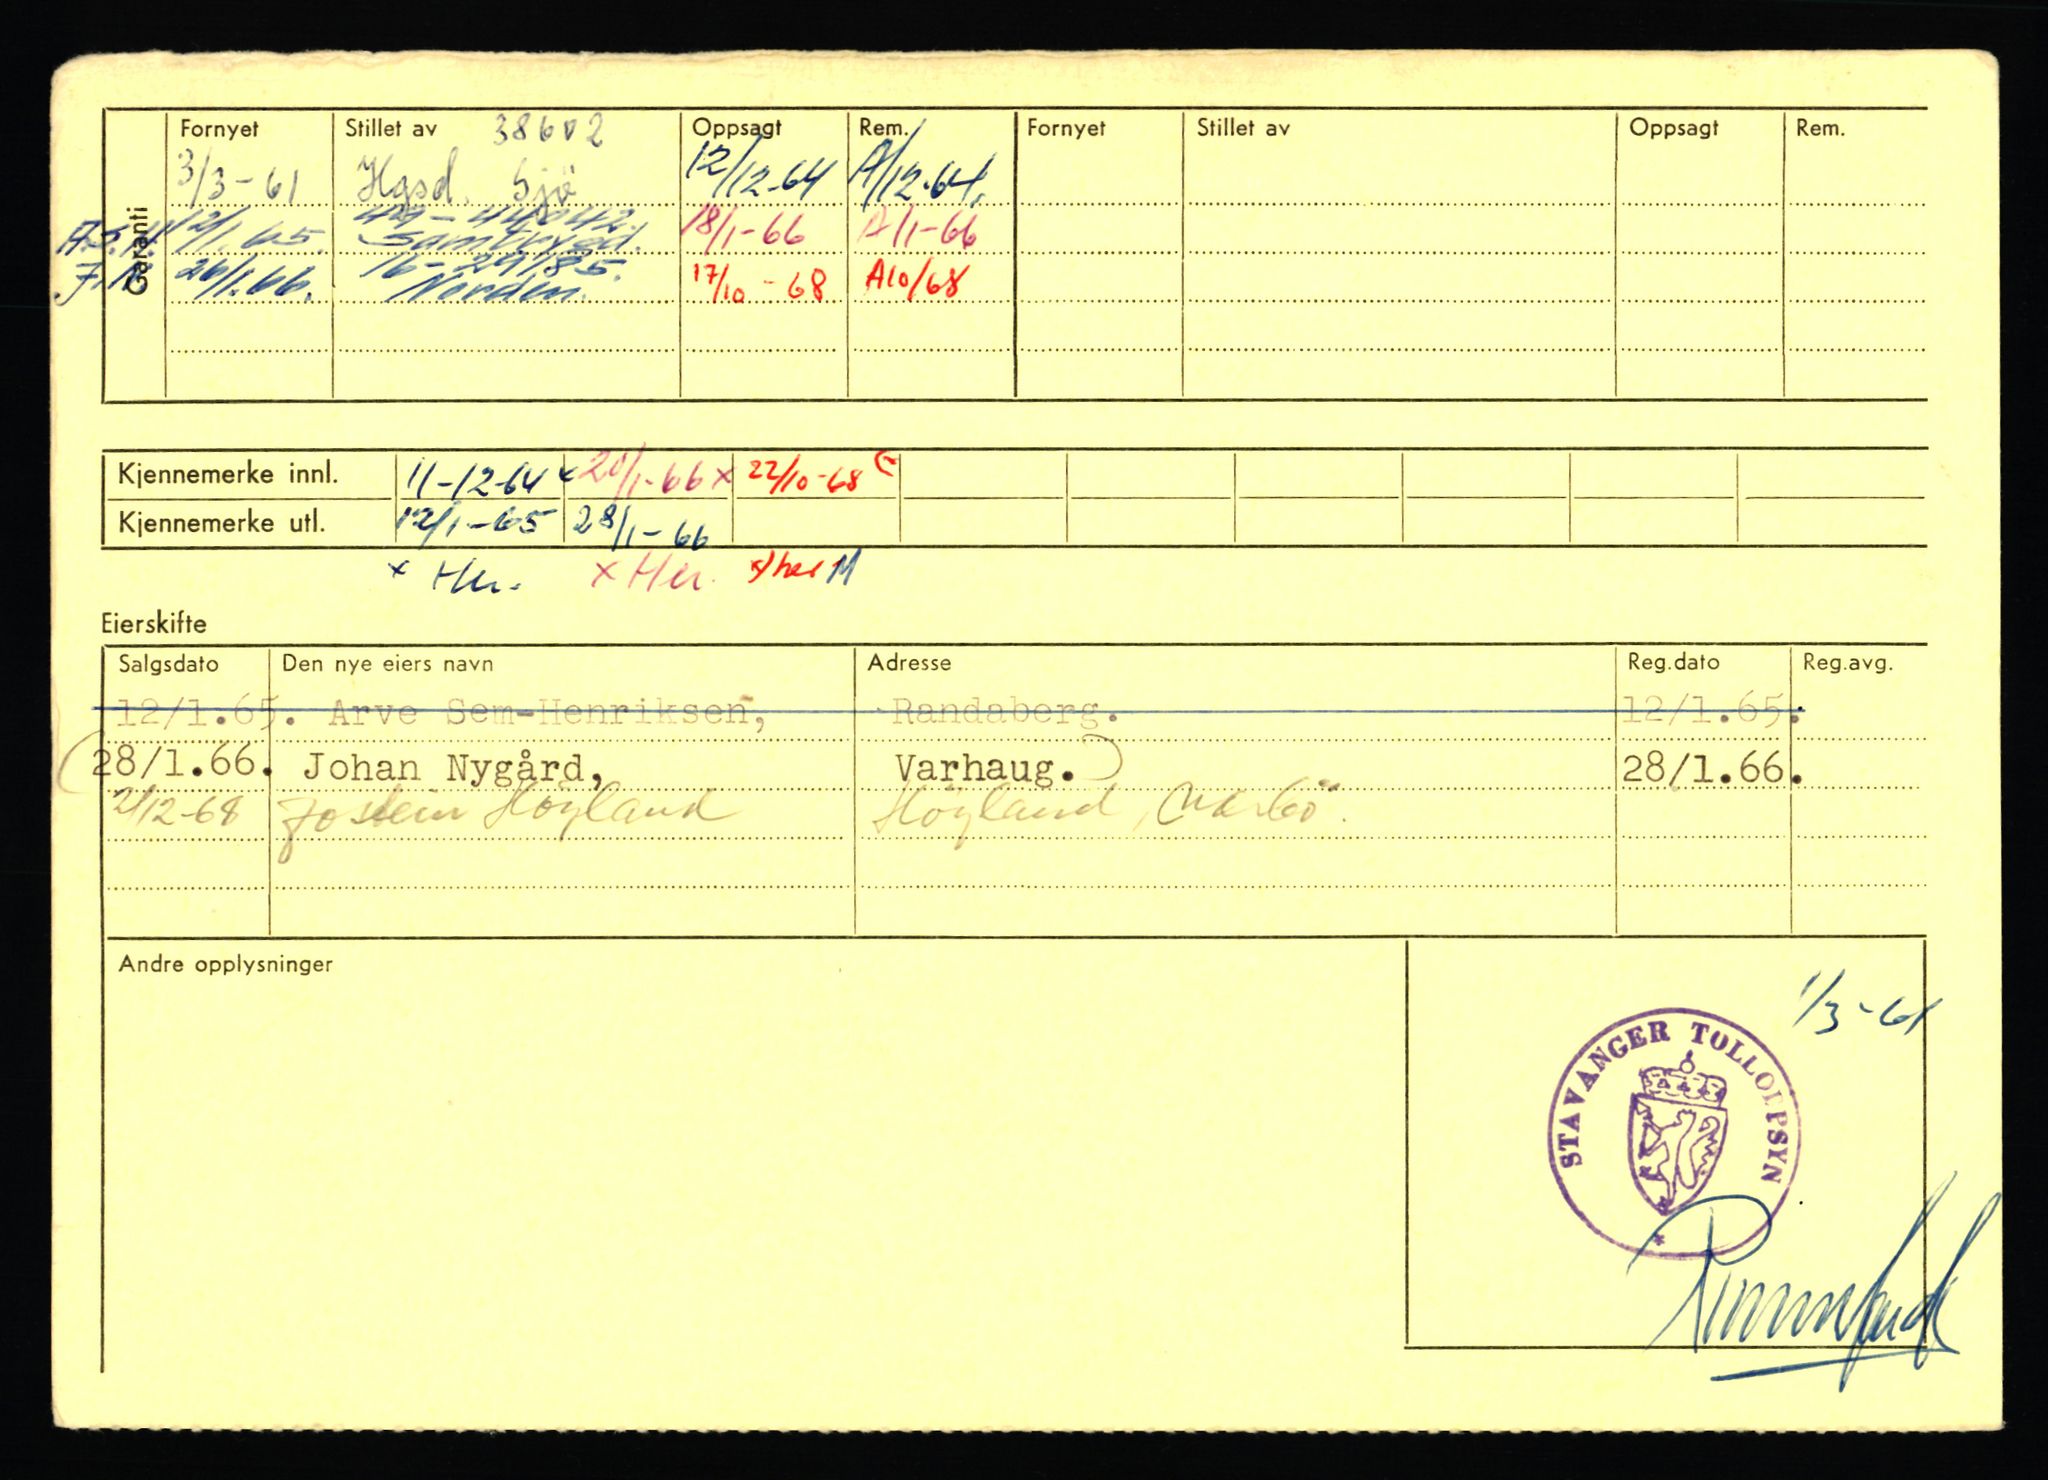 Garanti
Fornyet Stillet av 38602 Oppsagt Rem. Fornyet Stillet av Oppsagt Rem.
3/3-61 Hgsd. Sjö 12/12-64 A/12-64.
12/1.65. 49-44042. Samtrygd. 18/1-66 A/1-66
26/1.66. 16-29185. Norden. 17/10-68 A10/68
Kjennemerke innl. 11-12-64 x 20/1-66 x 22/10-68
Kjennemerke utl. 12/1-65 28/1-66
x Her. x Her. x) her M
Eierskifte
Salgsdato Den nye eiers navn Adresse Reg.dato Reg.avg.
12/1.65. Arve Sem-Henriksen, Randaberg. 12/1.65.
(28/1.66. Johan Nygård, Varhaug.) 28/1.66.
2/12-68 Jostein Höyland Höyland, Nærbö.
Andre opplysninger
1/3-61
STAVANGER TOLLOPPSYN